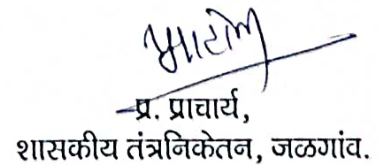 प्र. प्राचार्य,
शासकीय तंत्रनिकेतन, जळगांव.